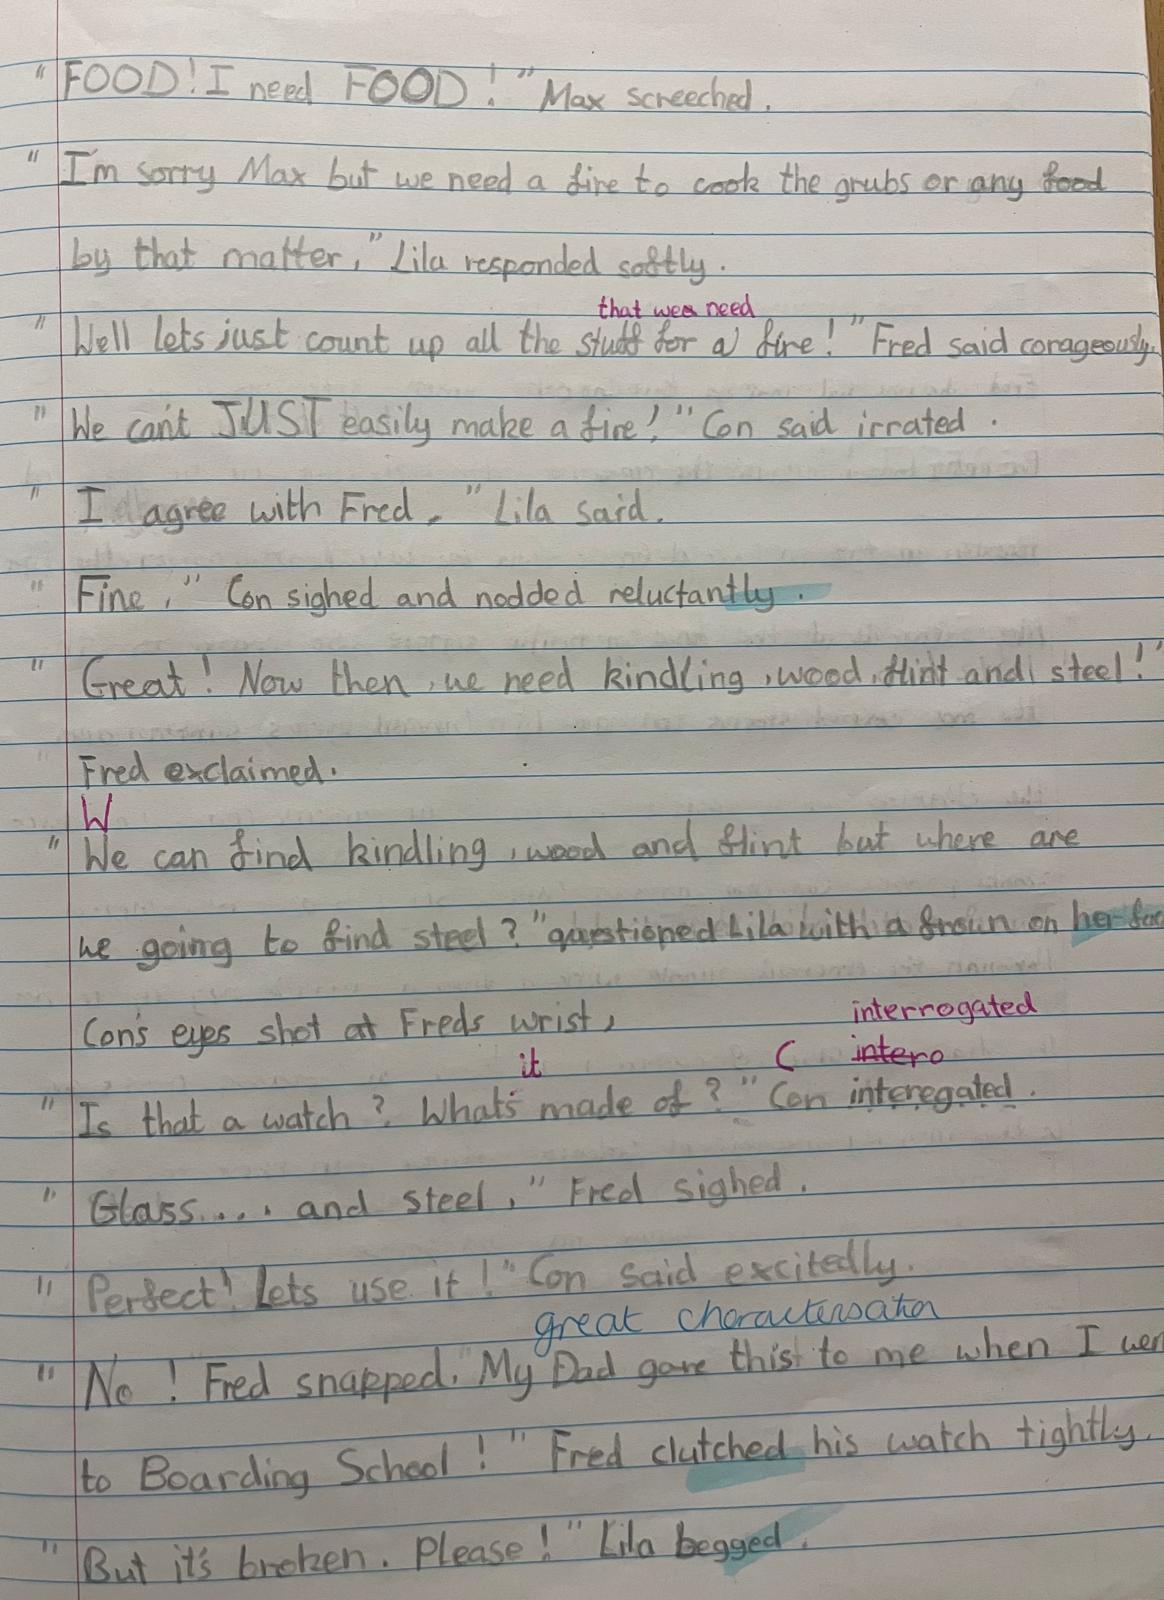 "FOOD! I need FOOD!" Max screeched.
"I'm sorry Max but we need a fire to cook the grubs or any food
by that matter," Lila responded softly.
that wea need
"Well lets just count up all the stuff for a fire!" Fred said corageously.
"We can't JUST easily make a fire!" Con said irrated.
"I agree with Fred." Lila said.
"Fine," Con sighed and nodded reluctantly.
"Great! Now then, we need kindling, wood, flint and steel!"
Fred exclaimed.
W
"We can find kindling, wood and flint but where are
we going to find steel?" questioned Lila with a frown on her fac
Con's eyes shot at Freds wrist,
interrogated
it C intero
"Is that a watch? What's made of?" Con interegated.
"Glass.... and steel," Fred sighed.
"Perfect! Lets use it!" Con said excitedly.
great characterisation
"No! Fred snapped. "My Dad gave this to me when I wen
to Boarding School!" Fred clutched his watch tightly.
"But it's broken. Please!" Lila begged.